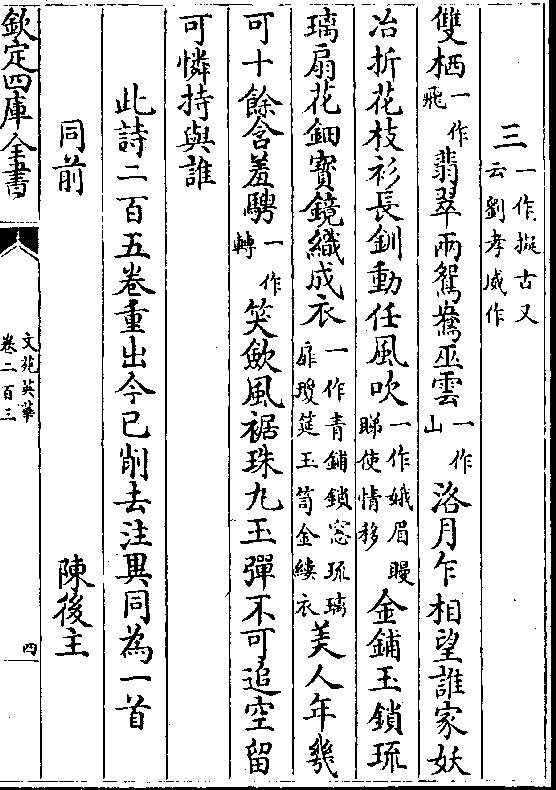 三一作擬古又云劉孝威作
雙栖一作飛翡翠兩鴛鴦巫雲一作山洛月乍相望誰家妖
冶折花枝衫長釧動任風吹一作娥眉曼睇使情移金鋪玉鎖琉
璃扇花鈿寳鏡織成衣一作青鋪鎖窓琉璃扉瓊筵玉笥金縷衣美人年幾
可十餘含羞騁一作轉笑歛風裾珠丸玉彈不可追空留
可憐持與誰
此詩二百五卷重出今已削去注異同為一首
同前　陳後主
欽定四庫全書
文苑英華
卷二百三
四